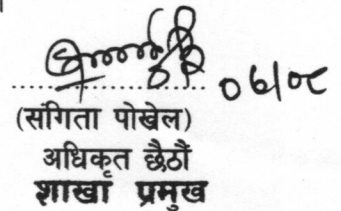 ०७/०८
(संगिता पोखेल)
अधिकृत छैठौं
शाखा प्रमुख